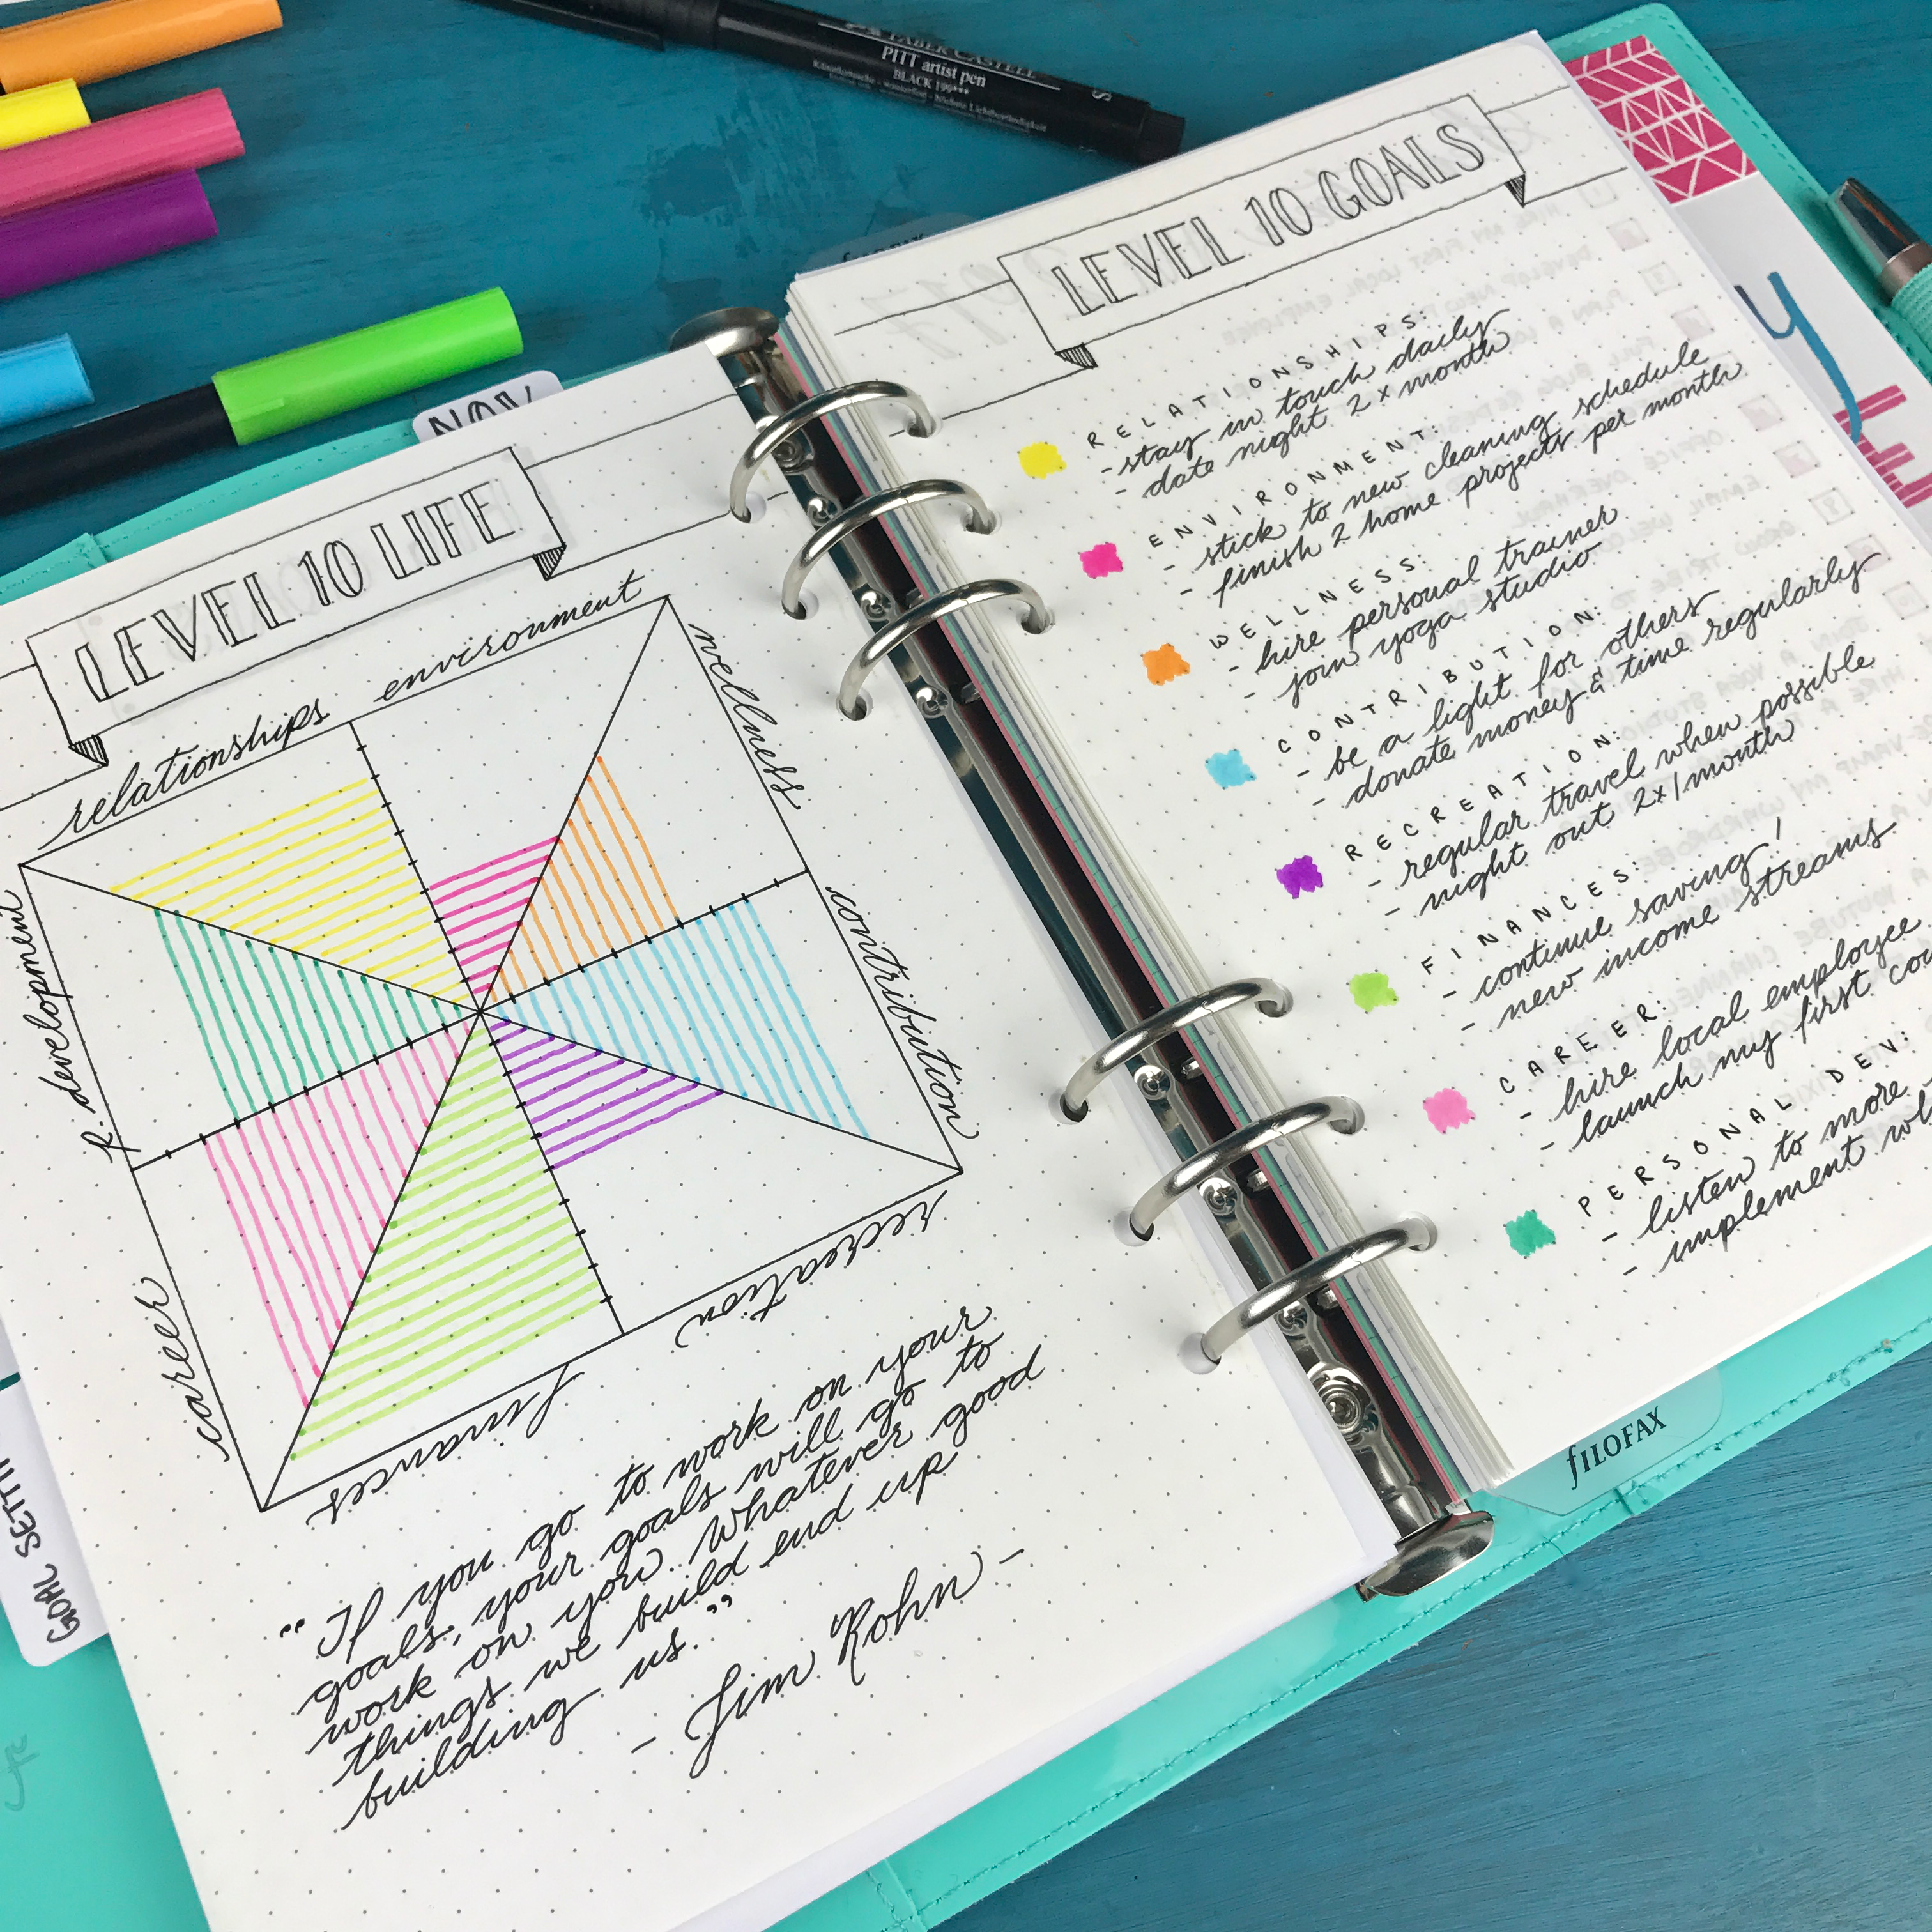 FABER-CASTELL
PITT artist pen
BLACK 199***
S
NOV
LEVEL 10 LIFE
relationships
environment
wellness
contribution
recreation
finances
career
p. development
"If you go to work on your
goals, your goals will go to
work on you. Whatever good
things we build end up
building us."
- Jim Rohn -
GOAL
LEVEL 10 GOALS
RELATIONSHIPS:
- stay in touch daily
- date night 2x month
ENVIRONMENT:
- stick to new cleaning schedule
- finish 2 home projects per month
WELLNESS:
- hire personal trainer
- join yoga studio
CONTRIBUTION:
- be a light for others
- donate money & time regularly
RECREATION:
- regular travel when possible
- night out 2x/month
FINANCES:
- continue saving!
- new income streams
CAREER:
- hire local employee
- launch my first
PERSONAL DEV:
- listen to more
- implement
y
fILOFAX